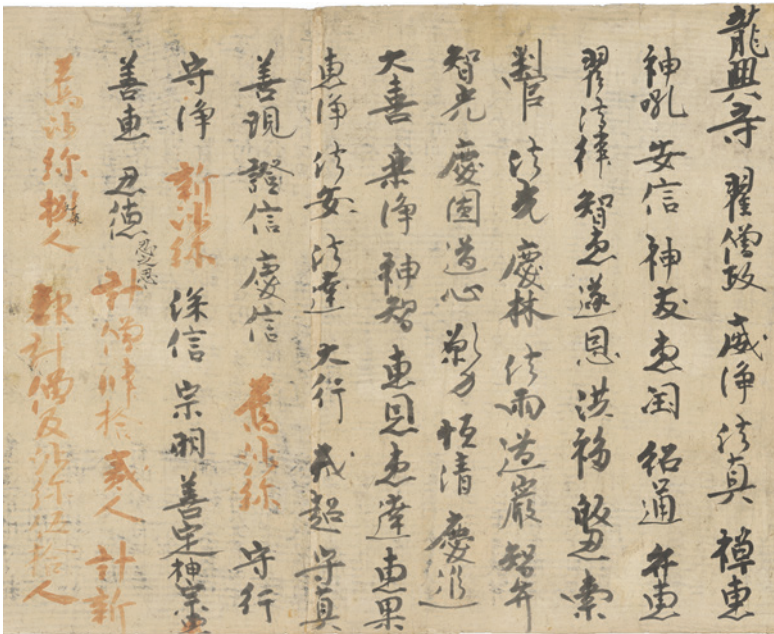 龍興寺 翟僧政 威淨 法真 禅惠
神㕸 安信 神友 惠閏 紹通 弁惠
翟法律 智惠 遂恩 洪福 索
判官 法光 慶林 法雨 道嚴 智弁
智光 慶固 道心 願力 恒清 慶道
大喜 乗淨 神智 惠恩 惠達 惠果
惠淨 法安 法達 大行 戒超 守真
善現 證信 慶信 舊沙弥 守行
守淨 新沙弥 深信 宗明 善定 神
善惠 忍德 恩之恩 計僧肆拾貳人 計新
舊沙弥捌人 都計僧及沙弥伍拾人